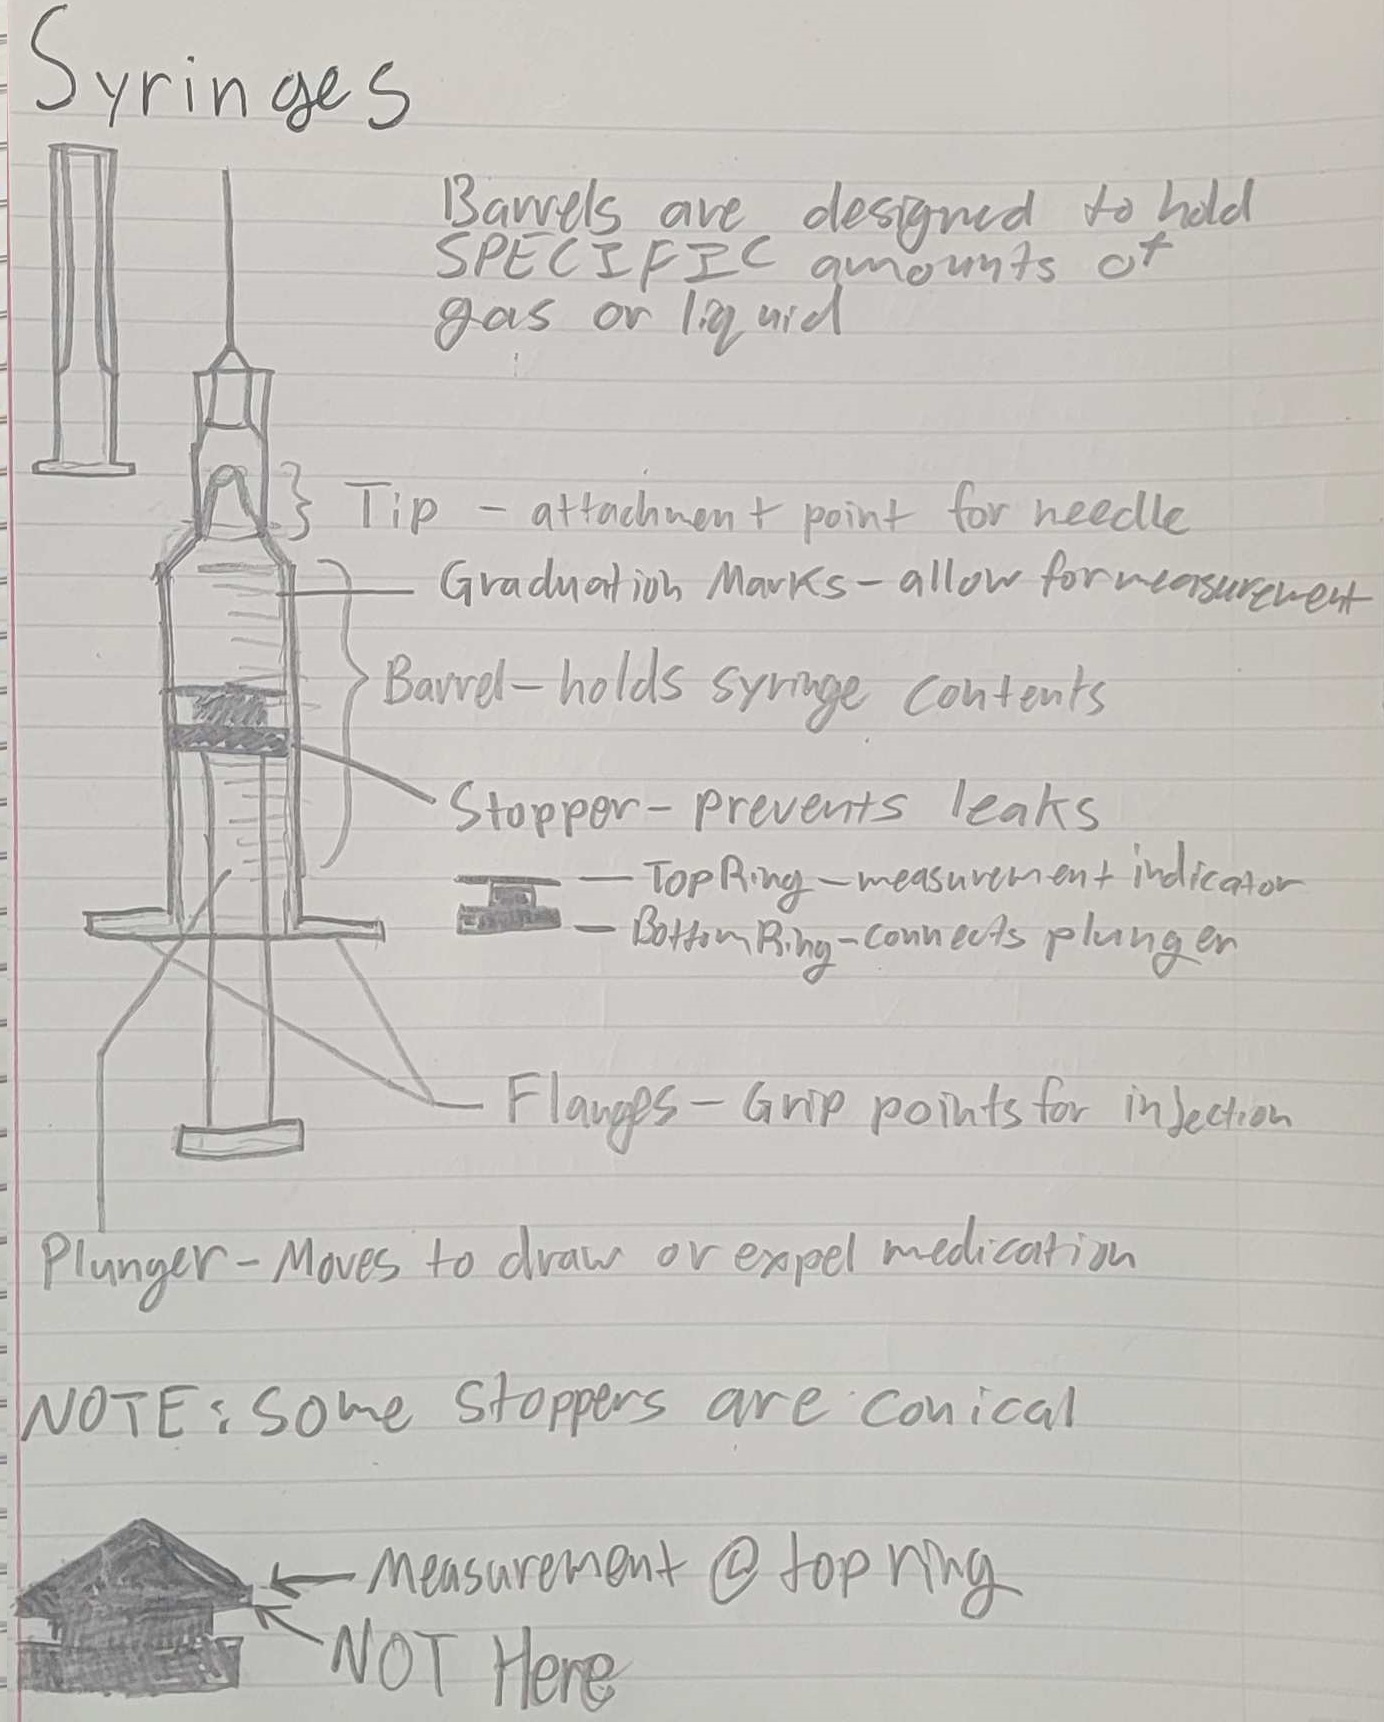 Syringes
Barrels are designed to hold
SPECIFIC amounts of
gas or liquid
} Tip - attachment point for needle
Graduation Marks - allow for measurement
Barrel - holds syringe contents
Stopper - prevents leaks
Top Ring - measurement indicator
Bottom Ring - connects plunger
Flanges - Grip points for injection
Plunger - Moves to draw or expel medication
NOTE: Some Stoppers are conical
Measurement @ top ring
NOT Here